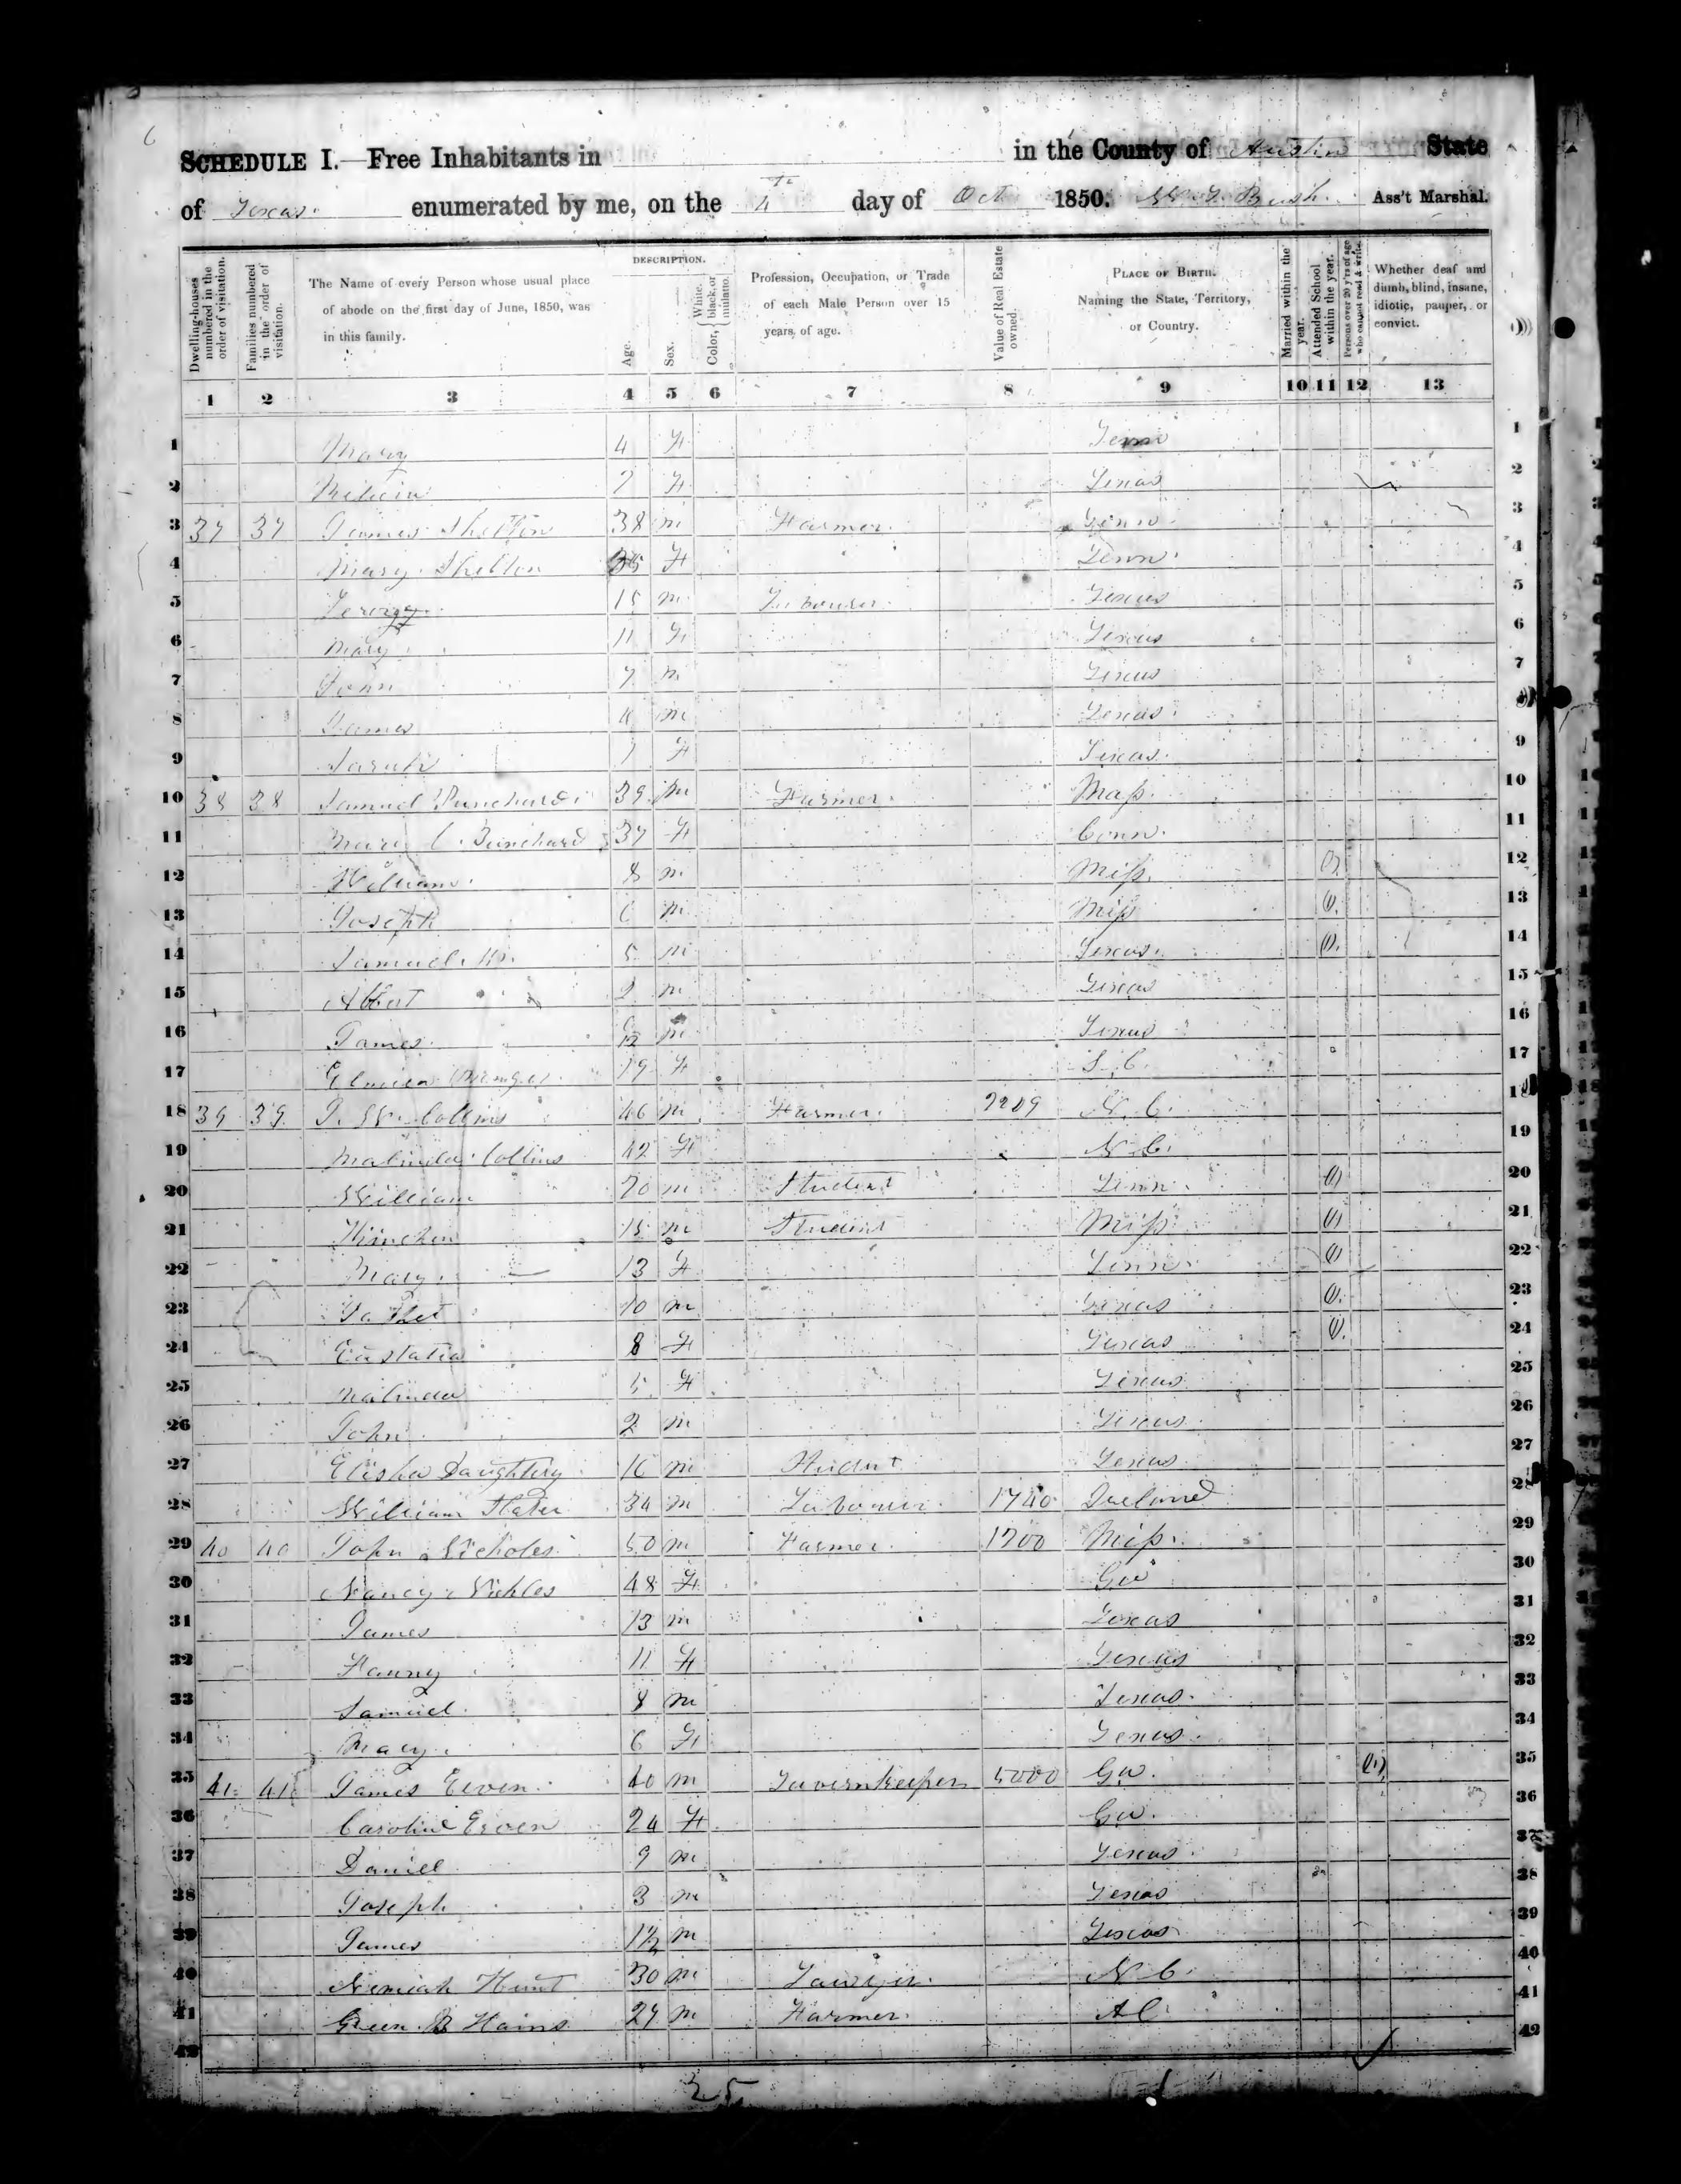 6
SCHEDULE I.—Free Inhabitants in in the County of Austin State
of Texas. enumerated by me, on the 4th day of Oct 1850. Bush. Ass't Marshal.
Dwelling-houses numbered in the order of visitation.
Families numbered in the order of visitation.
The Name of every Person whose usual place of abode on the first day of June, 1850, was in this family.
DESCRIPTION.
Age.
Sex.
Color, { White, black, or mulatto.
Profession, Occupation, or Trade of each Male Person over 15 years of age.
Value of Real Estate owned.
PLACE OF BIRTH. Naming the State, Territory, or Country.
Married within the year.
Attended School within the year.
Persons over 20 y'rs of age who cannot read & write.
Whether deaf and dumb, blind, insane, idiotic, pauper, or convict.
1 2 3 4 5 6 7 8 9 10 11 12 13
1 Mary 4 F Tenn 1
2 F Texas 2
3 37 37 James Shelton 38 m Farmer. Tenn. 3
4 Mary Shelton F Tenn. 4
5 15 m Labourer. Texas 5
6 Mary 11 F Texas 6
7 John 7 m Texas 7
8 James 4 m Texas. 8
9 Sarah 1 F Texas. 9
10 38 38 Samuel Punchard 39 m Farmer. Mass. 10
11 Mary C. Punchard 37 F Conn. 11
12 William. 8 m Miss. (1) 12
13 Joseph 6 m Miss (1). 13
14 Samuel. 5 m Texas. (1). 14
15 Albert 2 m Texas 15
16 James. m Texas 16
17 19 F S. C. 17
18 39 39 J. W. Collins 46 m Farmer. N. C. 18
19 Malinda Collins 42 F N. C. 19
20 William 20 m Student Tenn. (1) 20
21 Hinchen 15 m Student Miss. (1) 21
22 Mary. 13 F Tenn. (1) 22
23 10 m Texas (1). 23
24 Eustatia 8 F Texas (1). 24
25 Malinda 5 F Texas 25
26 John. 2 m Texas. 26
27 Elisha Daughtery 16 m Student Texas 27
28 William Slater 34 m Labourer. 1740 Ireland 28
29 40 40 John Nicholes. 50 m Farmer. 1700 Miss. 29
30 Nancy Nichles 48 F Ga 30
31 James 13 m Texas 31
32 Fanny 11 F Texas 32
33 Samuel. 8 m Texas. 33
34 Mary. 6 F Texas. 34
35 41 41 James Erven. 40 m Tavernkeeper 5000 Ga. (1) 35
36 Caroline Erven 24 F Ga. 36
37 Daniel 9 m Texas. 37
38 Joseph. 3 m Texas 38
39 James 1½ m Texas 39
40 Nemiah Hunt 30 m Lawyer. N. C. 40
41 Green B Hains 27 m Farmer. Al. 41
42 42
25